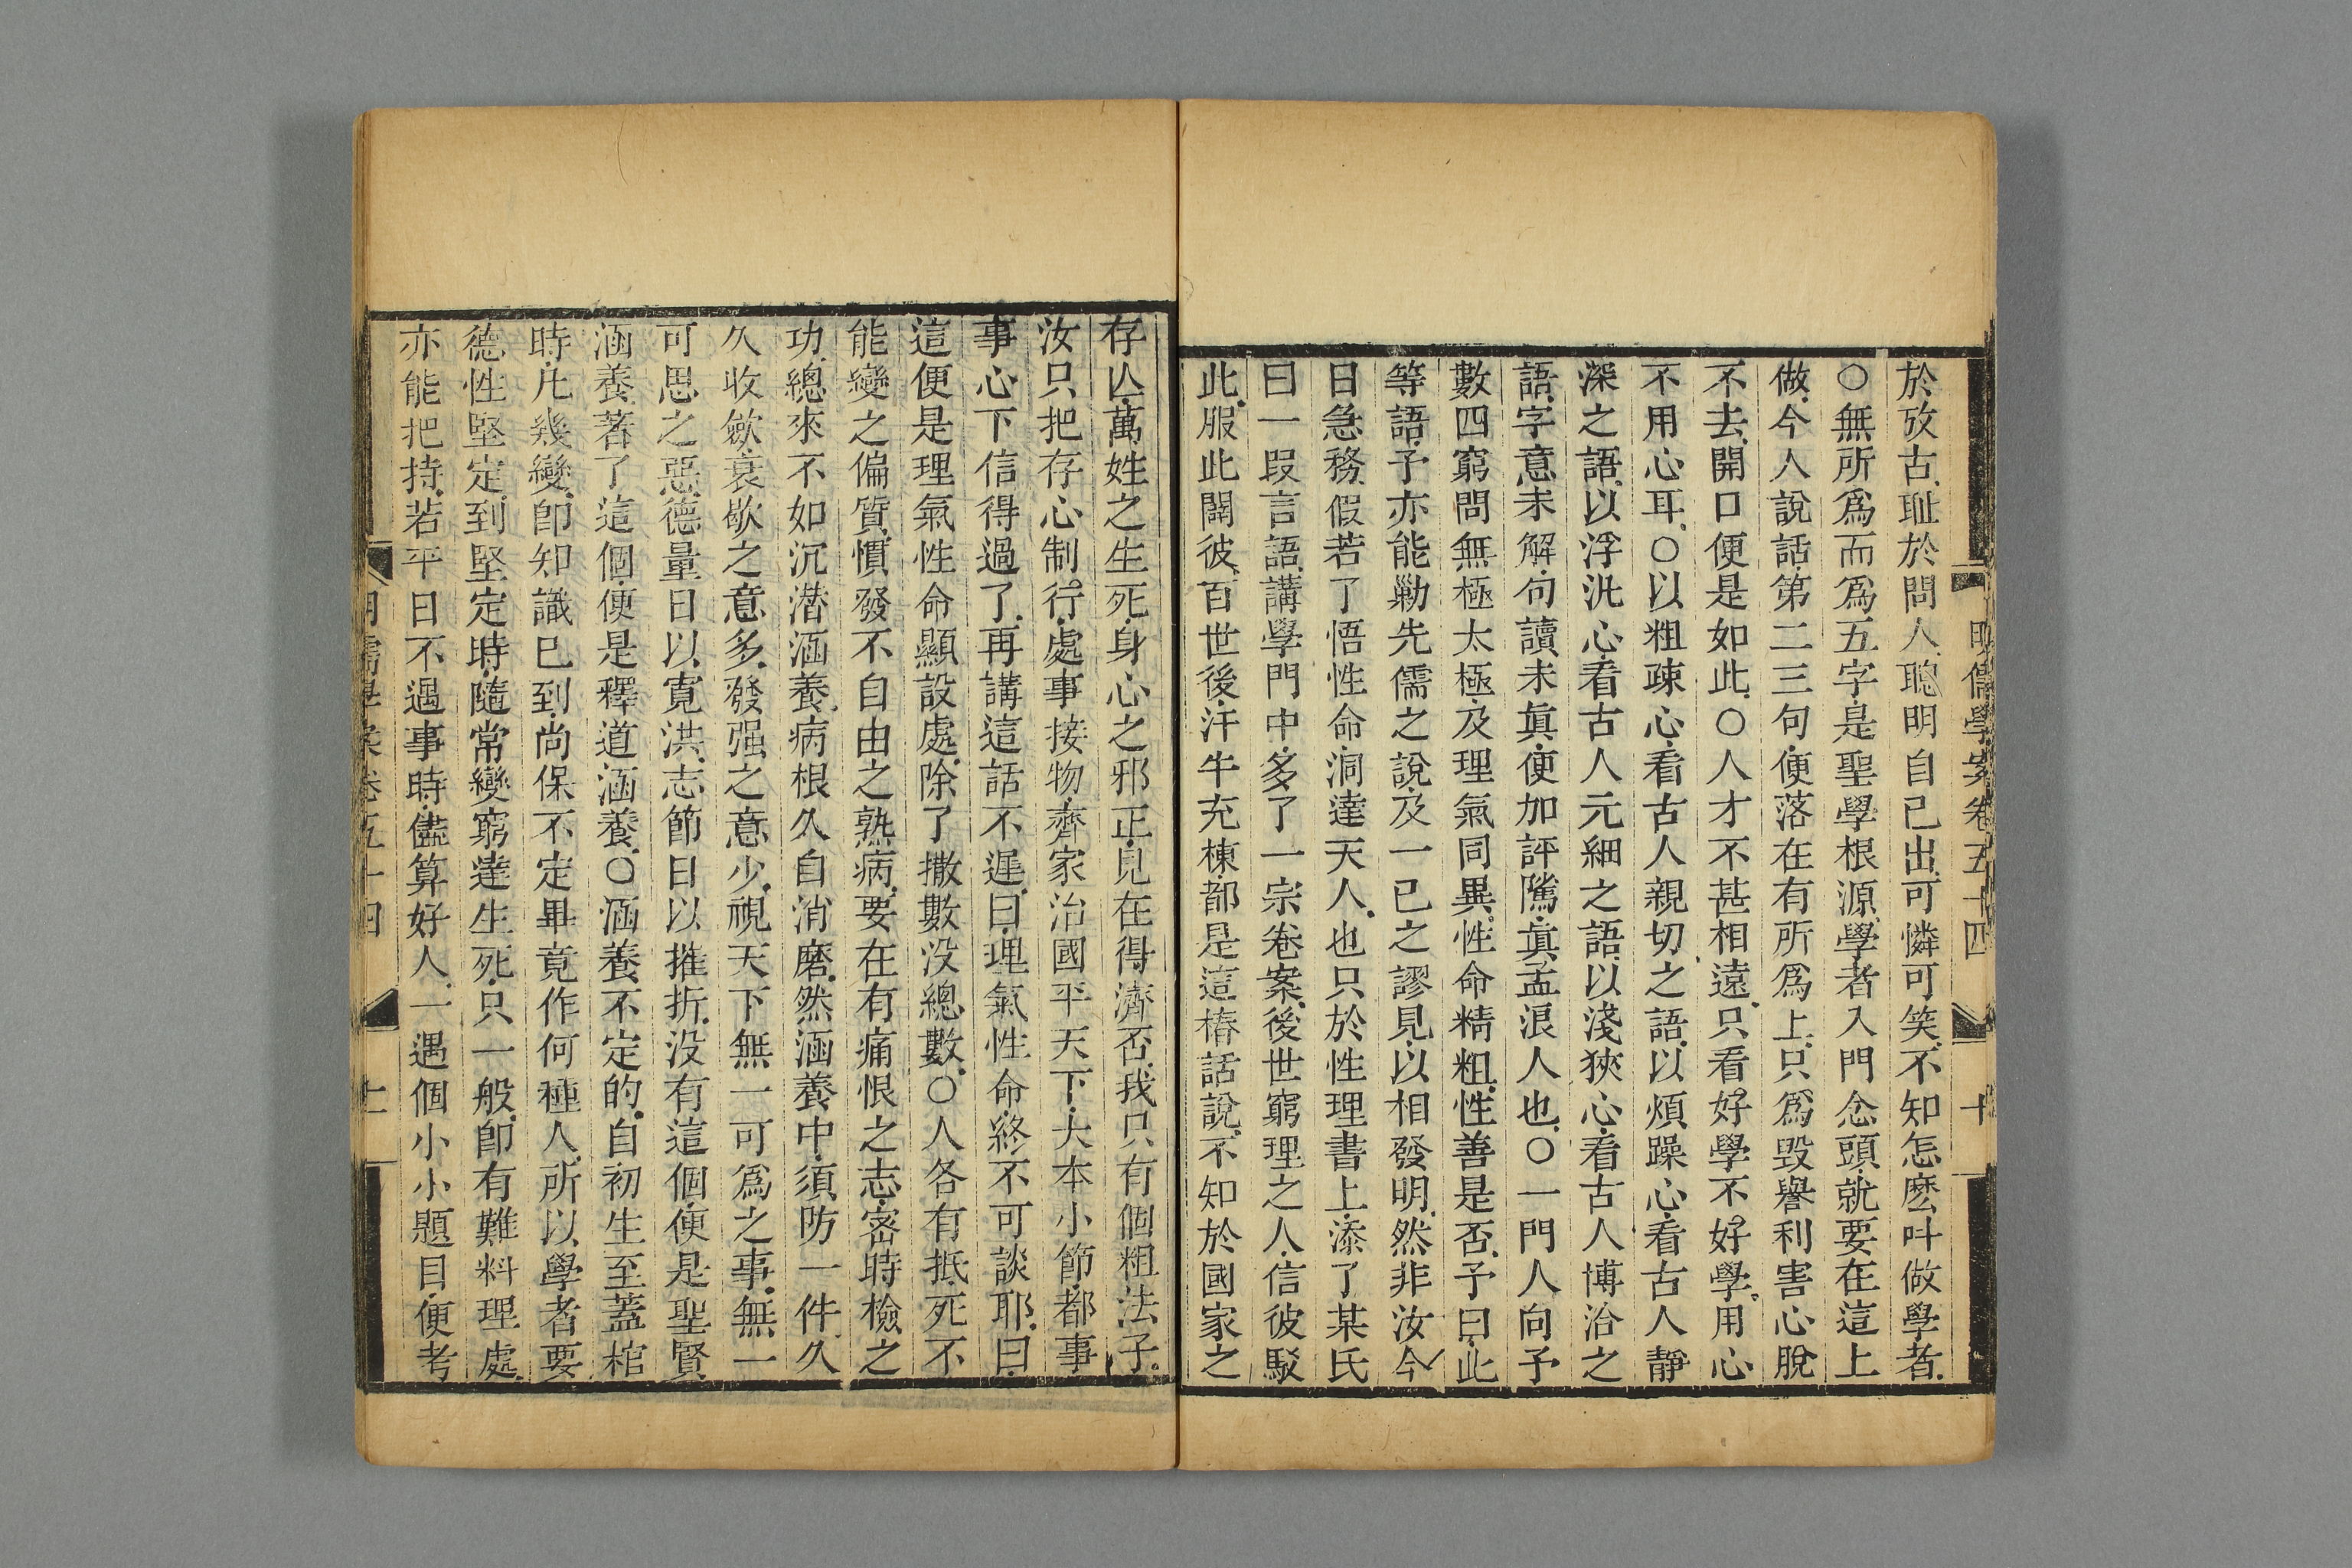 明儒學案卷五十四
十
於攷古耻於問人聰明自己出可憐可笑不知怎麽呌做學者
○無所爲而爲五字是聖學根源學者入門念頭就要在這上
做今人說話第二三句便落在有所爲上只爲毀譽利害心脫
不去開口便是如此○人才不甚相遠只看好學不好學用心
不用心耳○以粗疎心看古人親切之語以煩躁心看古人靜
深之語以浮汎心看古人元細之語以淺狹心看古人博洽之
語字意未解句讀未眞便加評隲眞孟浪人也○一門人向予
數四窮問無極太極及理氣同異性命精粗性善是否予曰此
等語予亦能勦先儒之說及一已之謬見以相發明然非汝今
日急務假若了悟性命洞達天人也只於性理書上添了某氏
曰一叚言語講學門中多了一宗卷案後世窮理之人信彼駁
此服此闢彼百世後汗牛充棟都是這樁話說不知於國家之
存亾萬姓之生死身心之邪正見在得濟否我只有個粗法子
汝只把存心制行處事接物齊家治國平天下大本小節都事
事心下信得過了再講這話不遲曰理氣性命終不可談耶曰
這便是理氣性命顯設處除了撒數没總數○人各有抵死不
能變之偏質慣發不自由之熟病要在有痛恨之志密時檢之
功總來不如沉潜涵養病根久自消磨然涵養中須防一件久
久收歛衰歇之意多發强之意少視天下無一可爲之事無一
可思之惡德量日以寛洪志節日以摧折没有這個便是聖賢
涵養著了這個便是釋道涵養○涵養不定的自初生至蓋棺
時凢幾變卽知識已到尚保不定畢竟作何種人所以學者要
德性堅定到堅定時隨常變窮達生死只一般卽有難料理處
亦能把持若平日不遇事時儘算好人一遇個小小題目便考
明儒學案卷五十四
十一